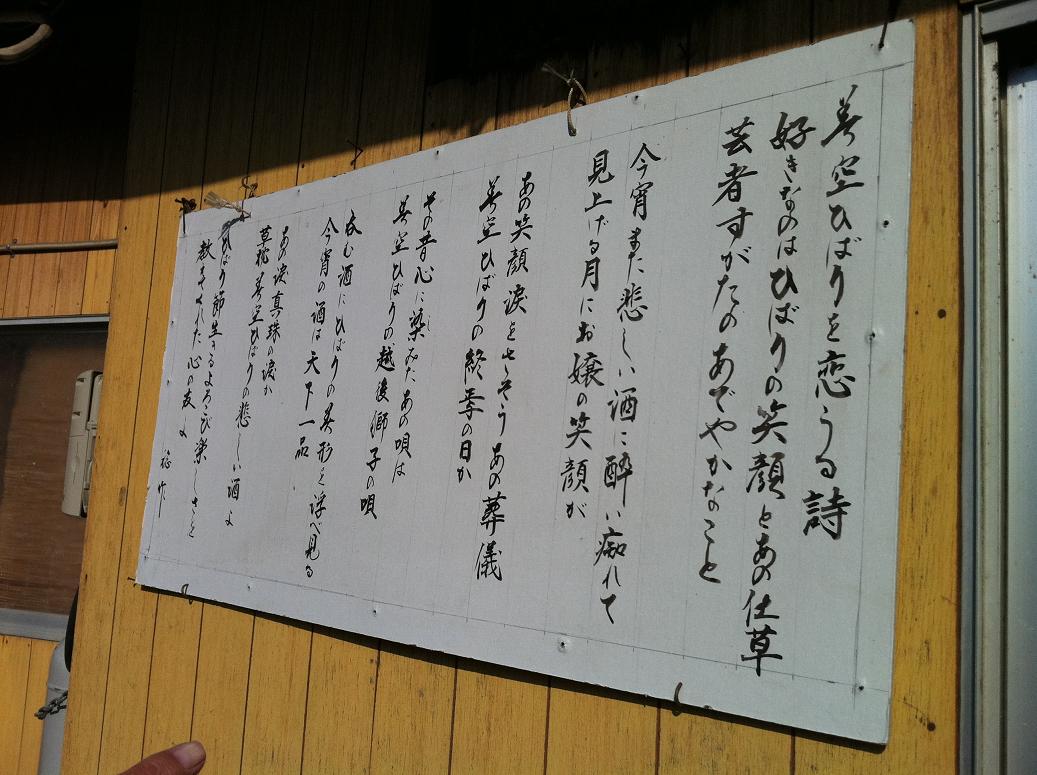 美空ひばりを恋うる詩
好きなのはひばりの笑顔とあの仕草
芸者すがたのあでやかなこと
今宵また悲しい酒に酔い痴れて
見上げる月にお嬢の笑顔が
あの笑顔涙をさそうあの葬儀
美空ひばりの終焉の日か
その昔心に染みたあの唄は
美空ひばりの越後獅子の唄
呑む酒にひばりの美形を浮べ見る
今宵の酒は天下一品
あの涙真珠の涙か
美空ひばりの悲しい酒よ
ひばり節生きるよろこび楽しさを
教えてくれた心の友よ
作